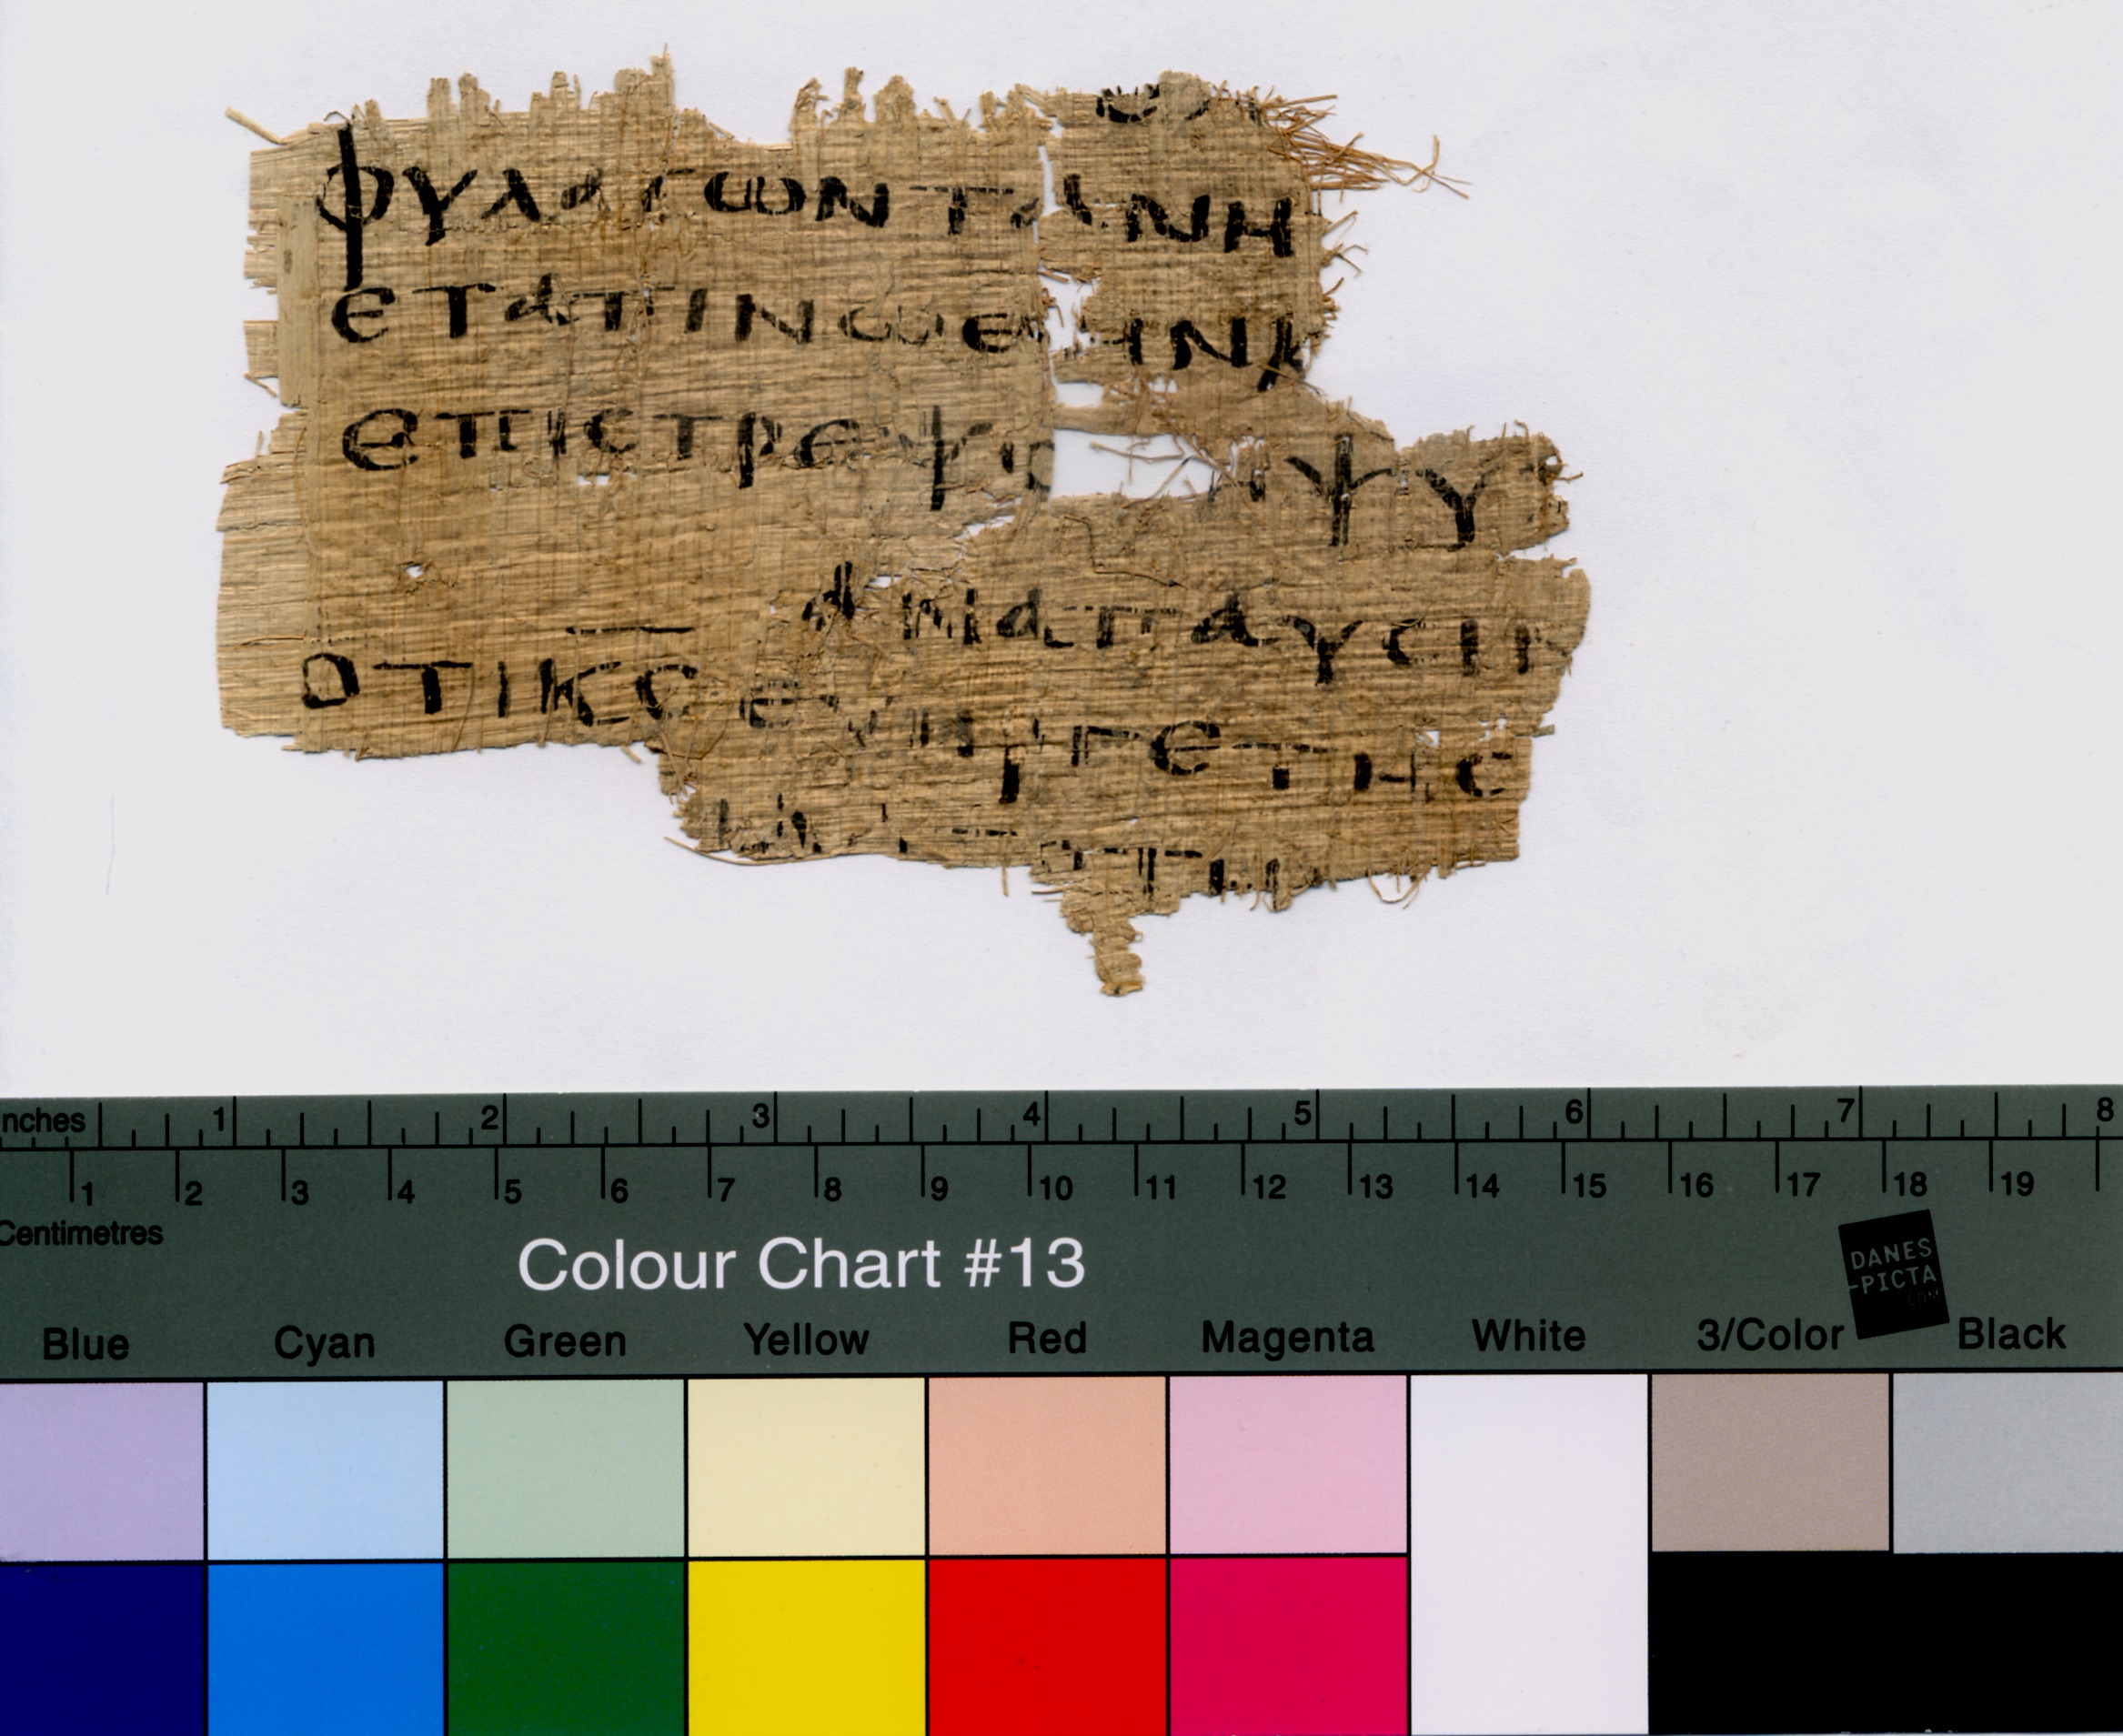 φυλαϲϲων τα νη
εταπινωθην κ
επιϲτρεψο η ψυ
αναπαυϲιν
οτι κ̅ϲ̅ ευηργετηϲ
nches 1 2 3 4 5 6 7 8
1 2 3 4 5 6 7 8 9 10 11 12 13 14 15 16 17 18 19
Centimetres
Colour Chart #13
DANES
-PICTA
.COM
Blue Cyan Green Yellow Red Magenta White 3/Color Black